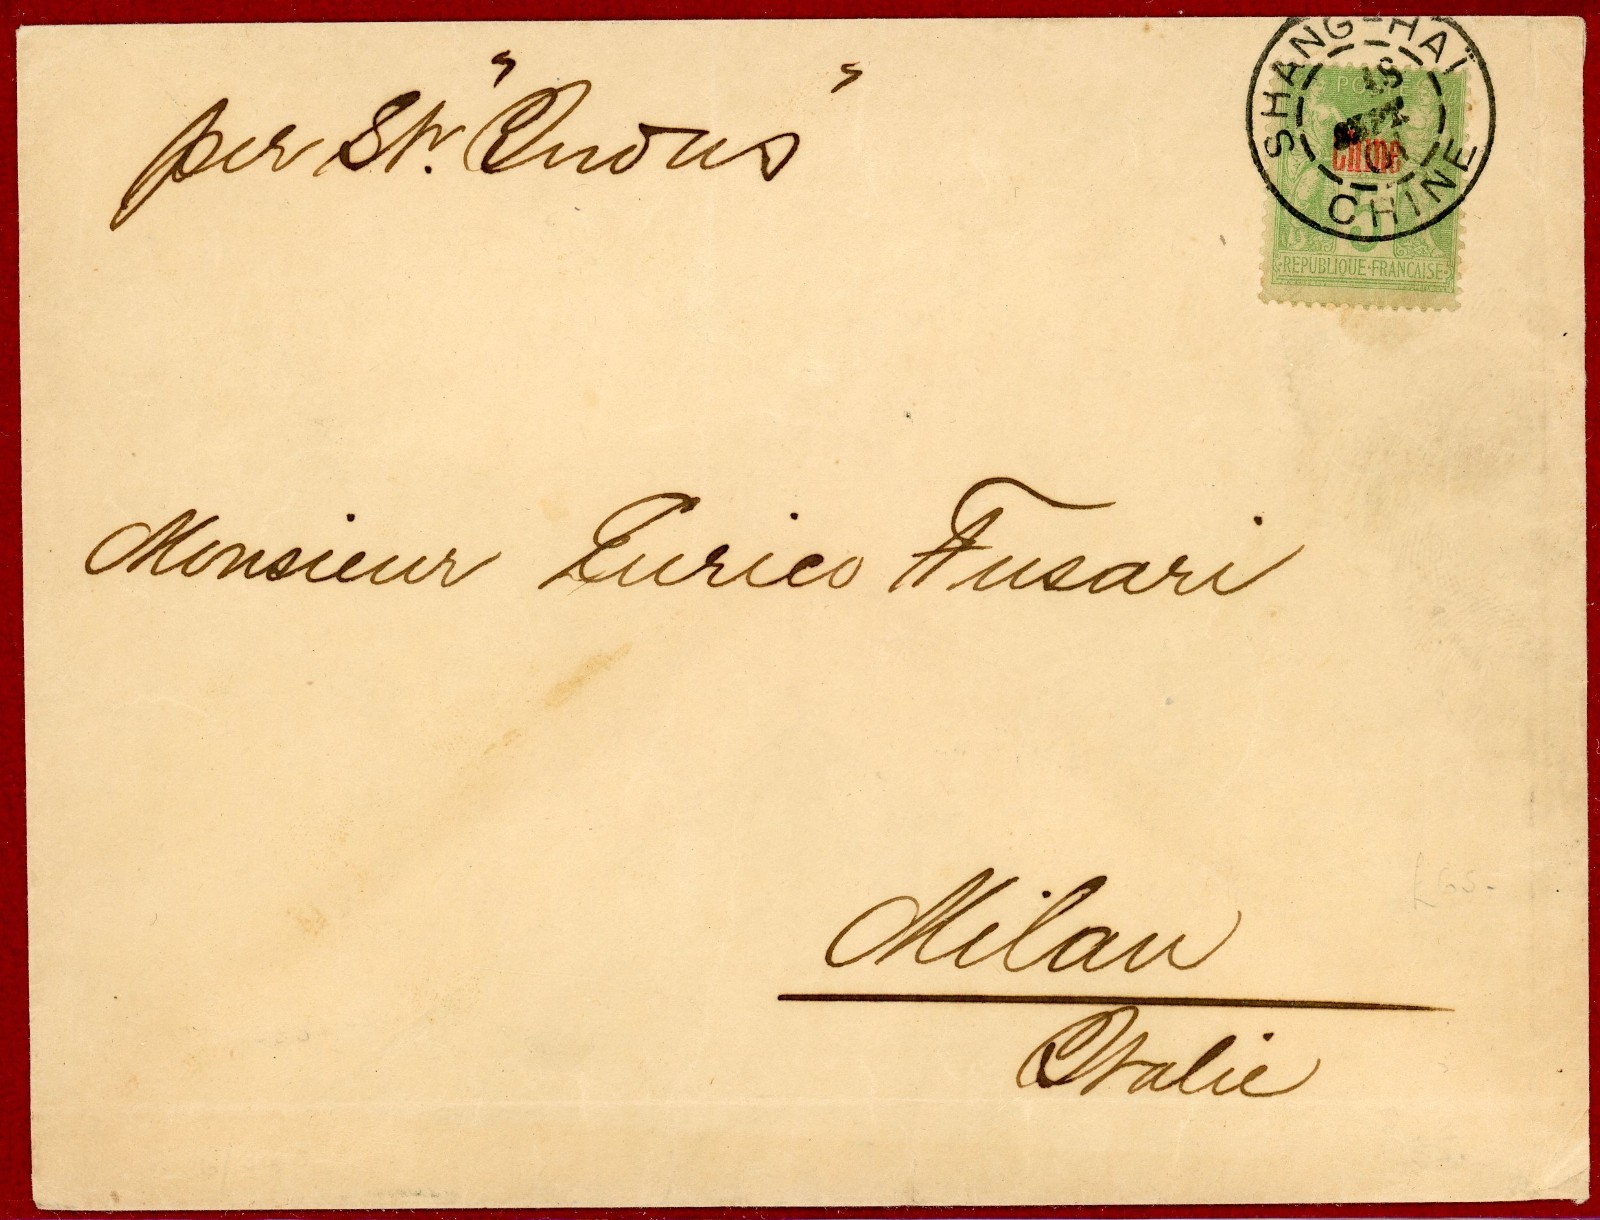 per Str. "Indus"
SHANG-HAÏ
18
SEPT
CHINE
POSTES
Chine
5
REPUBLIQUE·FRANCAISE
Monsieur Eurico Fusari
Milan
Italie